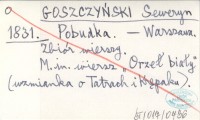 GOSZCZYŃSKI Seweryn
1831. Pobudka. — Warszawa.
Zbiór wierszy.
M. in. wiersz "Orzeł biały"
(wzmianka o Tatrach i Krępaku).